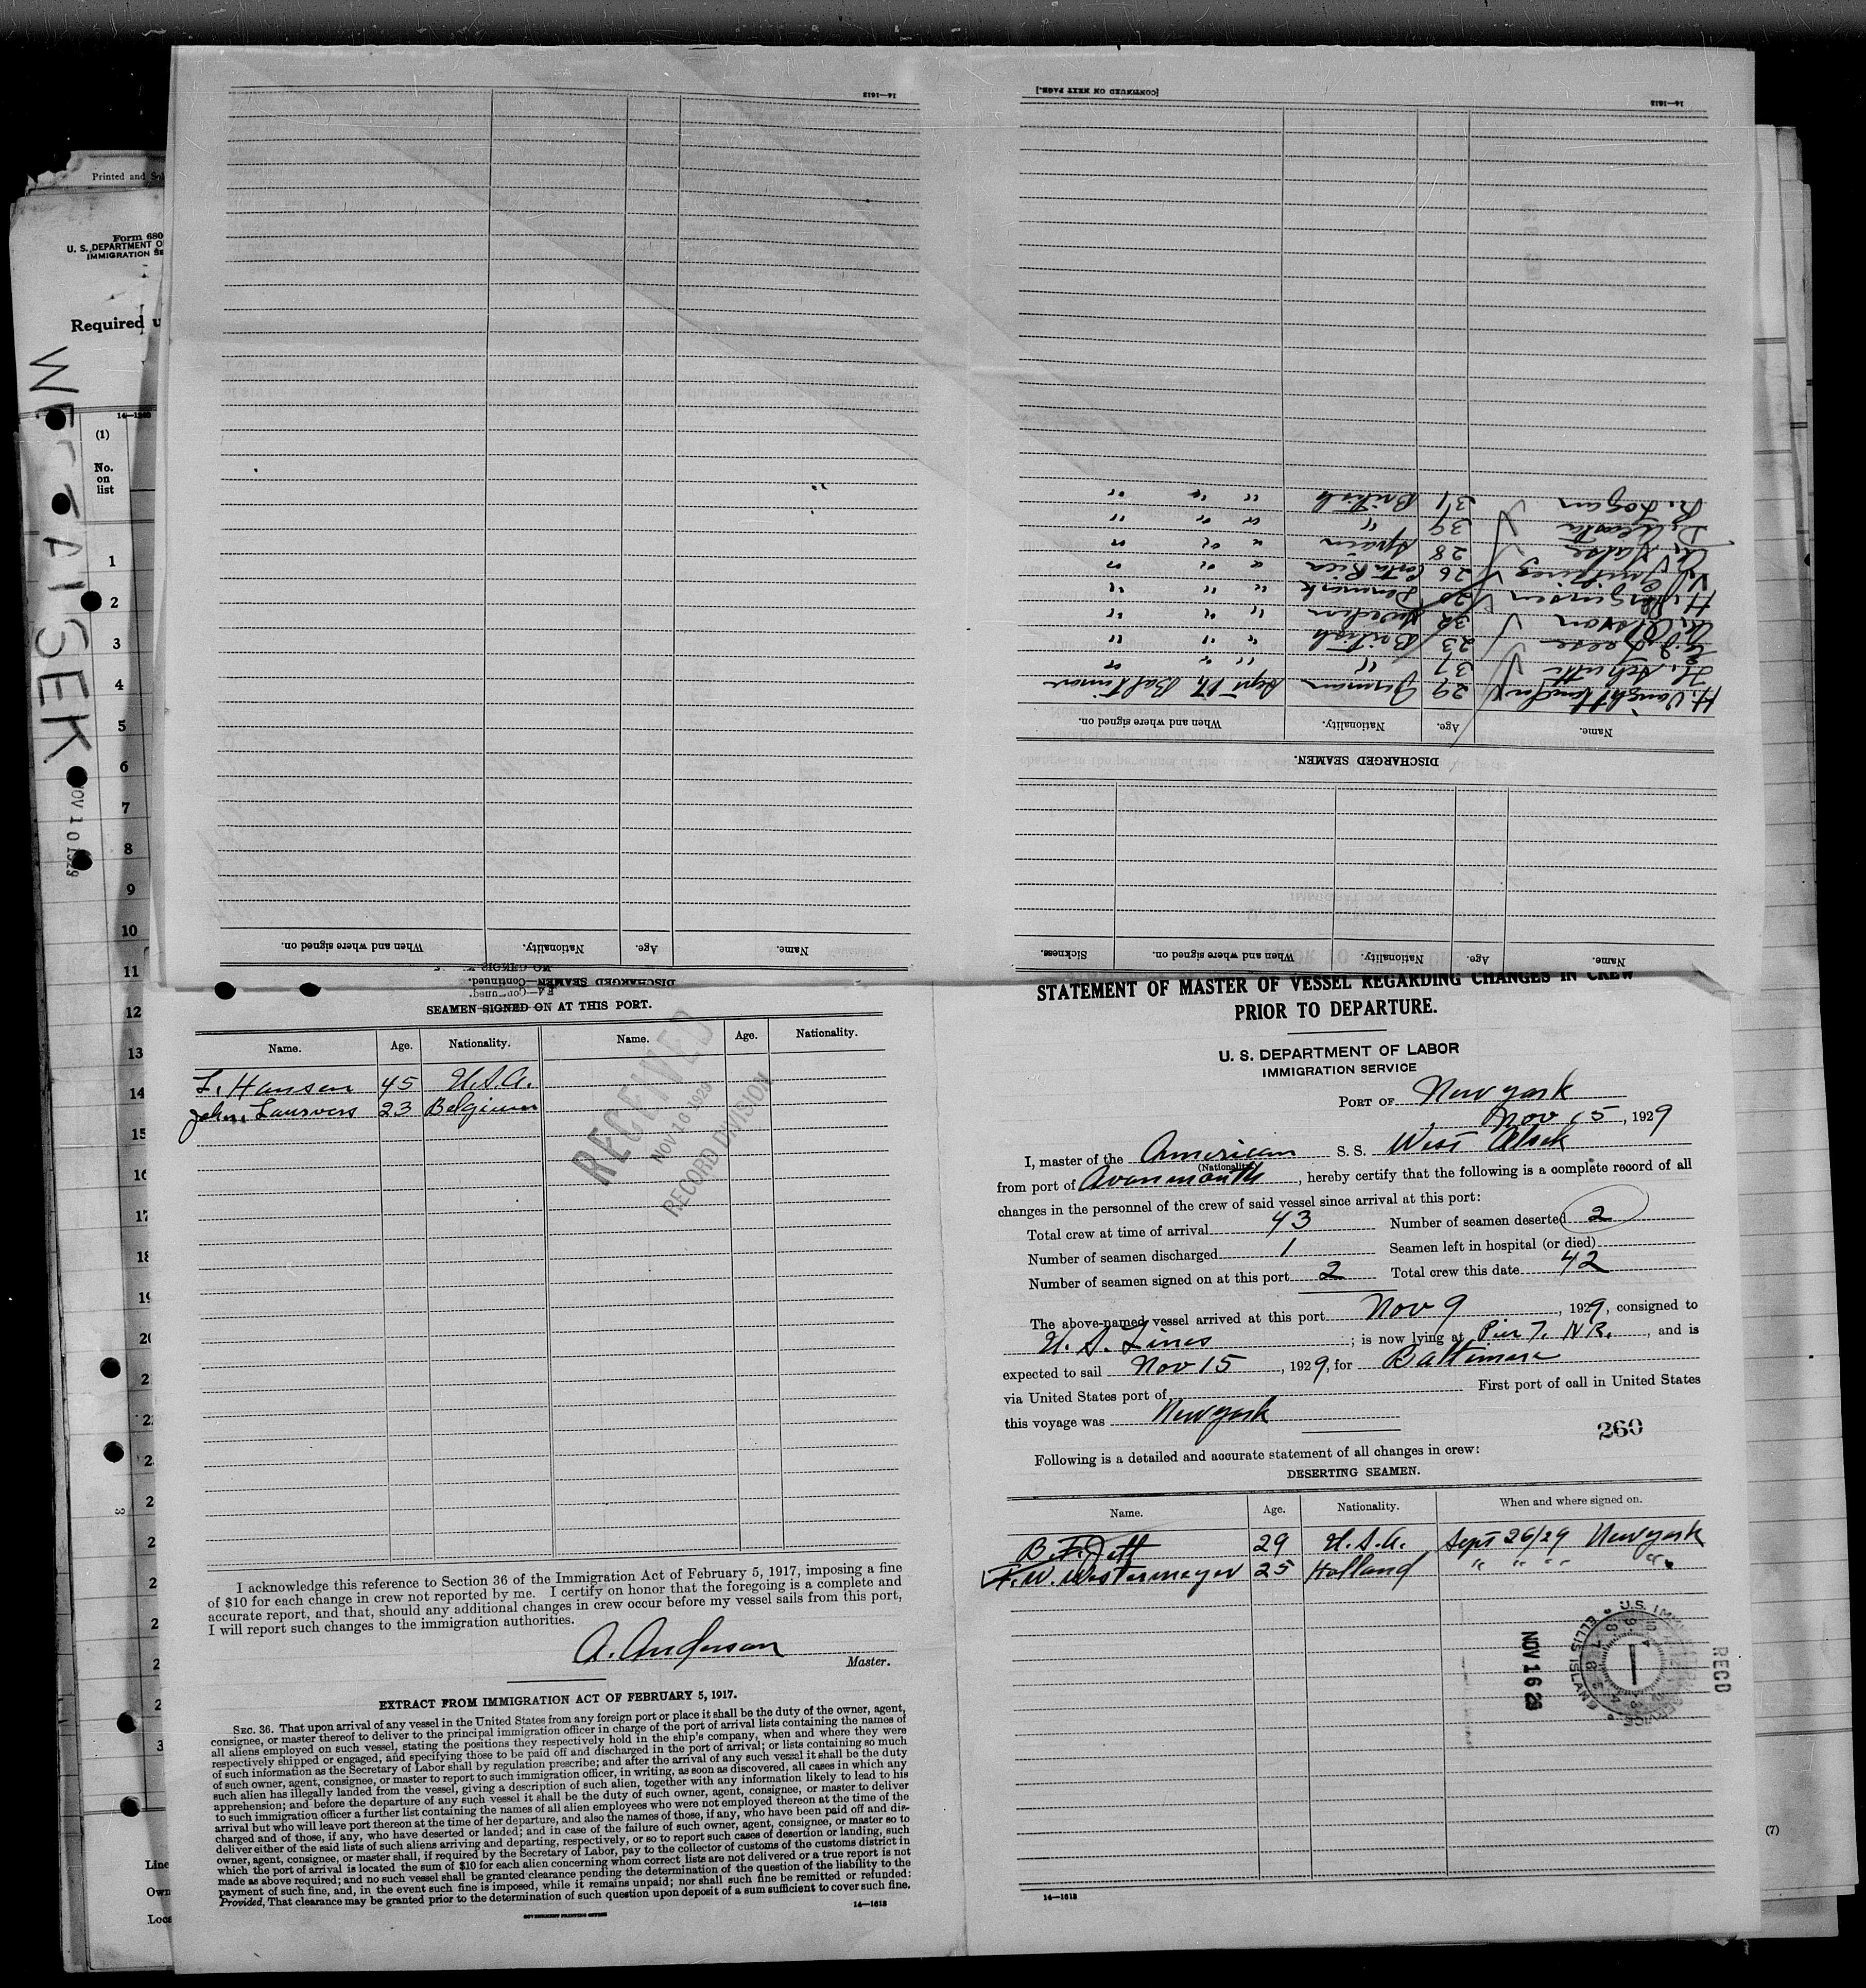 Printed and
Form 680
U. S. DEPARTMENT O
IMMIGRATION SE
Required u
14—1240
(1)
No.
on
list
1
2
3
4
5
6
7
8
9
10
11
12
13
14
15
16
17
18
NOV 10 1929
14—1613
Name.
Age.
Nationality.
When and where signed on.
DISCHARGED SEAMEN—Continued.
[CONTINUED ON NEXT PAGE.]
14—1613
Name. Age. Nationality. When and where signed on. Sickness.
DISCHARGED SEAMEN.
Name. Age. Nationality. When and where signed on.
29 German Sept 17 Baltimore
H. Schutte 37 " " " " "
23 British " " " "
32 Sweden " " " "
20 Denmark " " " "
26 Costa Rica " " " "
28 Spain " " " "
39 " " " " "
R. Logan 31 British " " " "
SEAMEN SIGNED ON AT THIS PORT.
Name. Age. Nationality. Name. Age. Nationality.
L. Hansen 45 U.S.A.
John 23 Belgium
RECEIVED
NOV 16 1929
RECORD DIVISION
I acknowledge this reference to Section 36 of the Immigration Act of February 5, 1917, imposing a fine
of $10 for each change in crew not reported by me. I certify on honor that the foregoing is a complete and
accurate report, and that, should any additional changes in crew occur before my vessel sails from this port,
I will report such changes to the immigration authorities.
A. Anderson
Master.
EXTRACT FROM IMMIGRATION ACT OF FEBRUARY 5, 1917.
SEC. 36. That upon arrival of any vessel in the United States from any foreign port or place it shall be the duty of the owner, agent,
consignee, or master thereof to deliver to the principal immigration officer in charge of the port of arrival lists containing the names of
all aliens employed on such vessel, stating the positions they respectively hold in the ship's company, when and where they were
respectively shipped or engaged, and specifying those to be paid off and discharged in the port of arrival; or lists containing so much
of such information as the Secretary of Labor shall by regulation prescribe; and after the arrival of any such vessel it shall be the duty
of such owner, agent, consignee, or master to report to such immigration officer, in writing, as soon as discovered, all cases in which any
such alien has illegally landed from the vessel, giving a description of such alien, together with any information likely to lead to his
apprehension; and before the departure of any such vessel it shall be the duty of such owner, agent, consignee, or master to deliver
to such immigration officer a further list containing the names of all alien employees who were not employed thereon at the time of the
arrival but who will leave port thereon at the time of her departure, and also the names of those, if any, who have been paid off and dis-
charged and of those, if any, who have deserted or landed; and in case of the failure of such owner, agent, consignee, or master so to
deliver either of the said lists of such aliens arriving and departing, respectively, or so to report such cases of desertion or landing, such
owner, agent, consignee, or master shall, if required by the Secretary of Labor, pay to the collector of customs of the customs district in
which the port of arrival is located the sum of $10 for each alien concerning whom correct lists are not delivered or a true report is not
made as above required; and no such vessel shall be granted clearance pending the determination of the question of the liability to the
payment of such fine, and, in the event such fine is imposed, while it remains unpaid; nor shall such fine be remitted or refunded:
Provided, That clearance may be granted prior to the determination of such question upon deposit of a sum sufficient to cover such fine.
GOVERNMENT PRINTING OFFICE
14—1613
STATEMENT OF MASTER OF VESSEL REGARDING CHANGES IN CREW
PRIOR TO DEPARTURE.
U. S. DEPARTMENT OF LABOR
IMMIGRATION SERVICE
PORT OF New York
Nov 15, 1929
I, master of the American S. S. West Alsek
(Nationality)
from port of Avonmouth, hereby certify that the following is a complete record of all
changes in the personnel of the crew of said vessel since arrival at this port:
Total crew at time of arrival 43 Number of seamen deserted 2
Number of seamen discharged 1 Seamen left in hospital (or died)
Number of seamen signed on at this port 2 Total crew this date 42
The above-named vessel arrived at this port Nov 9, 1929, consigned to
U. S. Lines; is now lying at Pier 7. N.R., and is
expected to sail Nov 15, 1929, for Baltimore
via United States port of First port of call in United States
this voyage was New York
260
Following is a detailed and accurate statement of all changes in crew:
DESERTING SEAMEN.
Name. Age. Nationality. When and where signed on.
B. F. Jett 29 U.S.A. Sept 26/29 New York
F. W. Westermeyer 25 Holland " " " "
NOV 16 29
U.S. IMMIGRATION SERVICE
ELLIS ISLAND
RECD
14—1613
(7)